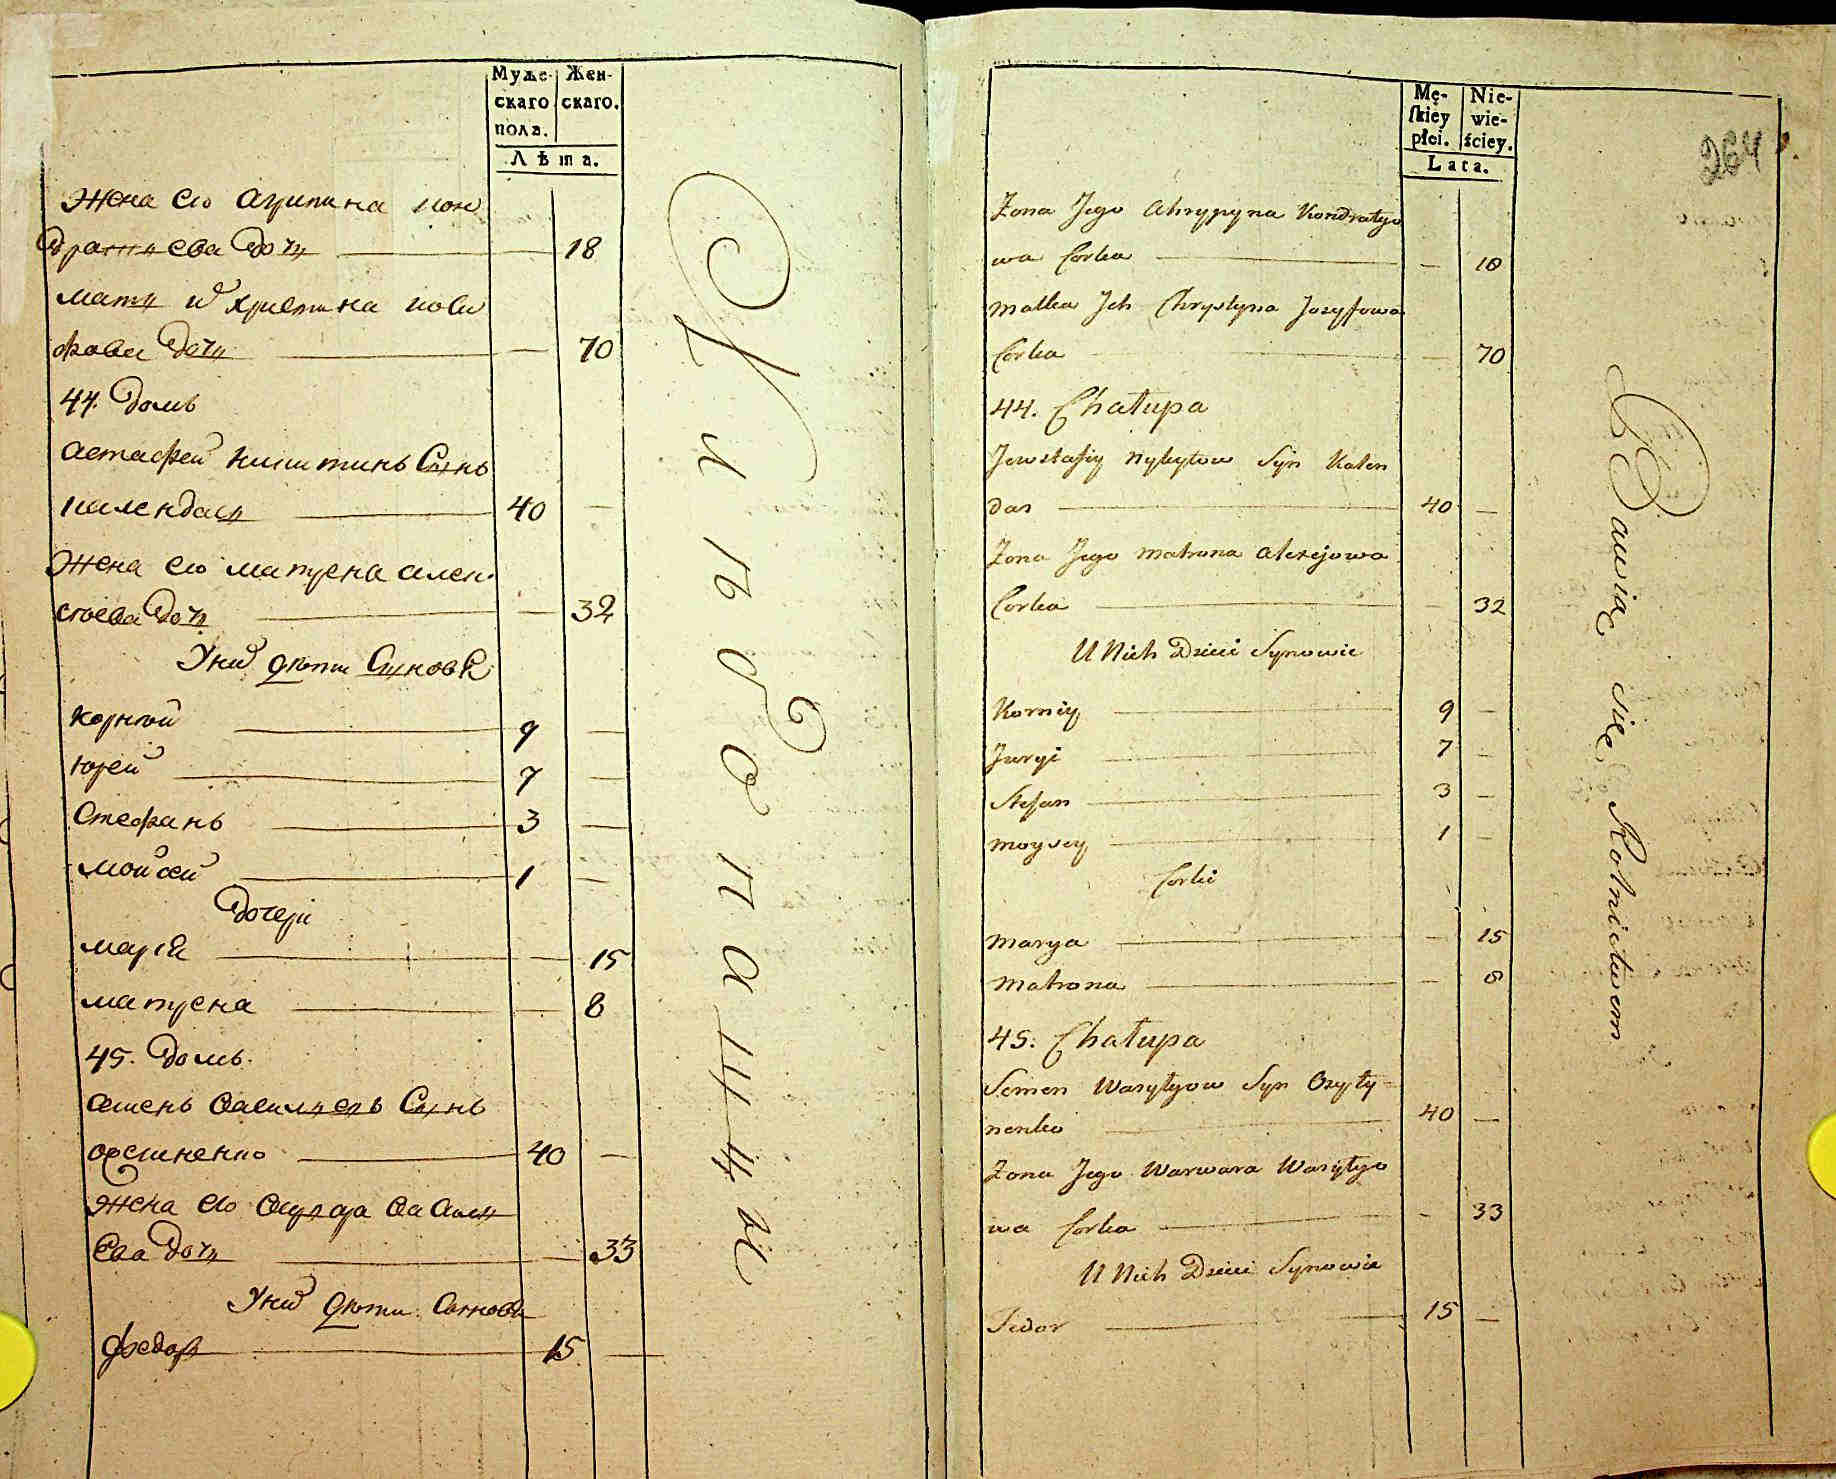 Муже-
скаго
пола.
Жен-
скаго.
Лѣта.
жена его агрипина кон
дратиева дочь 18
мать их христина иоси
фова дочь 70
44. домъ
астафей никитинъ Сынъ
календась 40
жена его матрена алек-
сѣева дочь 32
У них дѣти Сыновя
корнѣй 9
юрей 7
Стефанъ 3
мойсей 1
дочери
маря 15
матрена 8
45. домъ.
семенъ василиевъ Сынъ
40
жена его варвара васили
ева дочь 33
У них дѣти Сынови
федор 15
Хлѣбопашцы
Mę-
skiey
płci.
Nie-
wie-
ściey.
Lata.
264
Zona Jego Ahrypyna Kondratyo
wa Corka 18
Matka Jch Chrystyna Jozyfowa
Corka 70
44. Chałupa
Jewstafiy Nykytow Syn Kalen
das 40
Zona Jego Matrona Alexejowa
Corka 32
U Nich Dzieci Synowie
Korniy 9
Juryi 7
Stefan 3
Moysey 1
Corki
Marya 15
Matrona 8
45. Chałupa
Semen Wasylyow Syn
nenko 40
Zona Jego Warwara Wasylyo
wa Corka 33
U Nich Dzieci Synowie
Fedor 15
Bawią się Rolnictwem